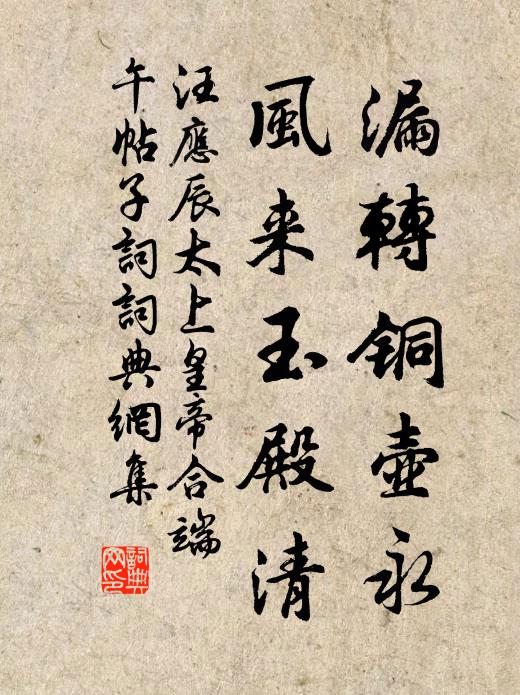 漏轉銅壺永
風来玉殿清
汪應辰太上皇帝合端
午帖子詞詞典網集
詞典網印